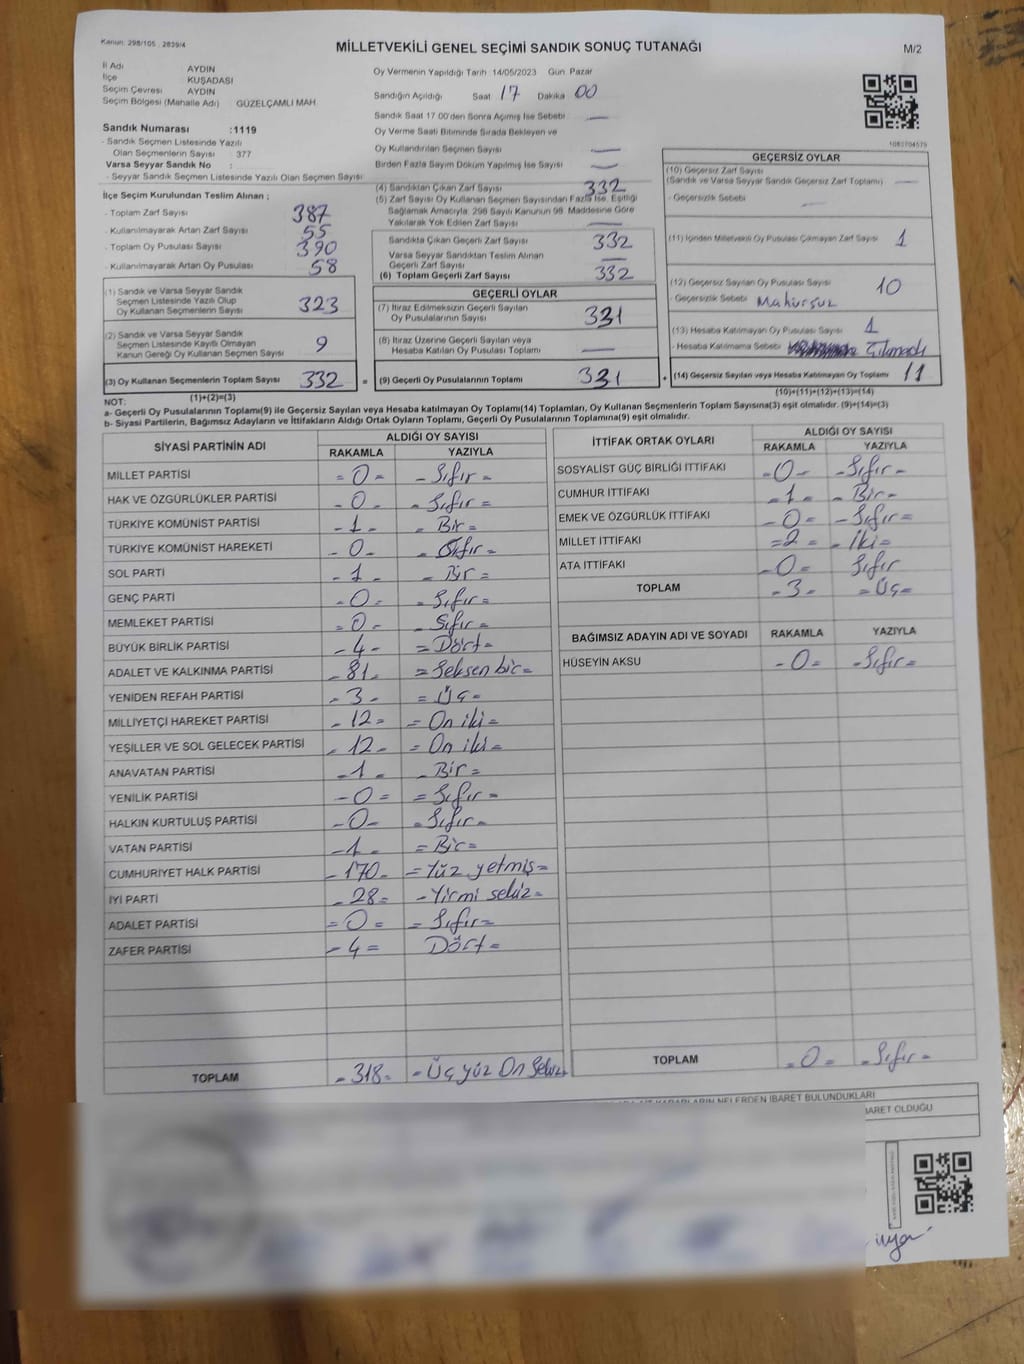 Kanun: 298/105 , 2839/4
MİLLETVEKİLİ GENEL SEÇİMİ SANDIK SONUÇ TUTANAĞI
M/2
İl Adı AYDIN
İlçe KUŞADASI
Seçim Çevresi AYDIN
Seçim Bölgesi (Mahalle Adı) GÜZELÇAMLI MAH.
Sandık Numarası :1119
- Sandık Seçmen Listesinde Yazılı
Olan Seçmenlerin Sayısı 377
Varsa Seyyar Sandık No :
- Seyyar Sandık Seçmen Listesinde Yazılı Olan Seçmen Sayısı
İlçe Seçim Kurulundan Teslim Alınan ;
- Toplam Zarf Sayısı 387
- Kullanılmayarak Artan Zarf Sayısı 55
- Toplam Oy Pusulası Sayısı 390
- Kullanılmayarak Artan Oy Pusulası 58
(1) Sandık ve Varsa Seyyar Sandık
Seçmen Listesinde Yazılı Olup
Oy Kullanan Seçmenlerin Sayısı 323
(2) Sandık ve Varsa Seyyar Sandık
Seçmen Listesinde Kayıtlı Olmayan
Kanun Gereği Oy Kullanan Seçmen Sayısı 9
(3) Oy Kullanan Seçmenlerin Toplam Sayısı 332
(1)+(2)=(3)
Oy Vermenin Yapıldığı Tarih 14/05/2023 Gün Pazar
Sandığın Açıldığı Saat 17 Dakika 00
Sandık Saat 17.00'den Sonra Açılmış İse Sebebi —
Oy Verme Saati Bitiminde Sırada Bekleyen ve
Oy Kullandırılan Seçmen Sayısı —
Birden Fazla Sayım Döküm Yapılmış İse Sayısı —
(4) Sandıktan Çıkan Zarf Sayısı 332
(5) Zarf Sayısı Oy Kullanan Seçmen Sayısından Fazla İse, Eşitliği
Sağlamak Amacıyla, 298 Sayılı Kanunun 98. Maddesine Göre
Yakılarak Yok Edilen Zarf Sayısı —
Sandıkta Çıkan Geçerli Zarf Sayısı 332
Varsa Seyyar Sandıktan Teslim Alınan
Geçerli Zarf Sayısı —
(6) Toplam Geçerli Zarf Sayısı 332
GEÇERLİ OYLAR
(7) İtiraz Edilmeksizin Geçerli Sayılan
Oy Pusulalarının Sayısı 321
(8) İtiraz Üzerine Geçerli Sayılan veya
Hesaba Katılan Oy Pusulası Toplamı —
= (9) Geçerli Oy Pusulalarının Toplamı 321
1083704575
GEÇERSİZ OYLAR
(10) Geçersiz Zarf Sayısı
(Sandık ve Varsa Seyyar Sandık Geçersiz Zarf Toplamı) —
- Geçersizlik Sebebi —
(11) İçinden Milletvekili Oy Pusulası Çıkmayan Zarf Sayısı 1
(12) Geçersiz Sayılan Oy Pusulası Sayısı 10
- Geçersizlik Sebebi Mühürsüz
(13) Hesaba Katılmayan Oy Pusulası Sayısı 1
- Hesaba Katılmama Sebebi Çıkmadı
+ (14) Geçersiz Sayılan veya Hesaba Katılmayan Oy Toplamı 11
(10)+(11)+(12)+(13)=(14)
NOT:
a- Geçerli Oy Pusulalarının Toplamı(9) ile Geçersiz Sayılan veya Hesaba katılmayan Oy Toplamı(14) Toplamları, Oy Kullanan Seçmenlerin Toplam Sayısına(3) eşit olmalıdır. (9)+(14)=(3)
b- Siyasi Partilerin, Bağımsız Adayların ve İttifakların Aldığı Ortak Oyların Toplamı, Geçerli Oy Pusulalarının Toplamına(9) eşit olmalıdır.
SİYASİ PARTİNİN ADI ALDIĞI OY SAYISI
RAKAMLA YAZIYLA
MİLLET PARTİSİ = 0 - - Sıfır =
HAK VE ÖZGÜRLÜKLER PARTİSİ - 0 - - Sıfır =
TÜRKİYE KOMÜNİST PARTİSİ - 1 - - Bir =
TÜRKİYE KOMÜNİST HAREKETİ - 0 - - Sıfır =
SOL PARTİ - 1 - - Bir =
GENÇ PARTİ - 0 - - Sıfır =
MEMLEKET PARTİSİ = 0 = - Sıfır =
BÜYÜK BİRLİK PARTİSİ - 4 - = Dört =
ADALET VE KALKINMA PARTİSİ - 81 - = Seksen bir =
YENİDEN REFAH PARTİSİ - 3 - = Üç =
MİLLİYETÇİ HAREKET PARTİSİ - 12 = = On iki =
YEŞİLLER VE SOL GELECEK PARTİSİ - 12 - = On iki =
ANAVATAN PARTİSİ - 1 - - Bir =
YENİLİK PARTİSİ - 0 = = Sıfır =
HALKIN KURTULUŞ PARTİSİ - 0 - = Sıfır =
VATAN PARTİSİ - 1 - = Bir =
CUMHURİYET HALK PARTİSİ - 170 - = Yüz yetmiş =
İYİ PARTİ - 28 = - Yirmi sekiz =
ADALET PARTİSİ = 0 = = Sıfır =
ZAFER PARTİSİ - 4 = Dört =
TOPLAM - 318 - - Üç yüz On Sekiz -
İTTİFAK ORTAK OYLARI ALDIĞI OY SAYISI
RAKAMLA YAZIYLA
SOSYALİST GÜÇ BİRLİĞİ İTTİFAKI - 0 - - Sıfır =
CUMHUR İTTİFAKI - 1 - - Bir =
EMEK VE ÖZGÜRLÜK İTTİFAKI - 0 = - Sıfır =
MİLLET İTTİFAKI = 2 = - İki =
ATA İTTİFAKI - 0 = Sıfır
TOPLAM - 3 - = Üç =
BAĞIMSIZ ADAYIN ADI VE SOYADI RAKAMLA YAZIYLA
HÜSEYİN AKSU - 0 = - Sıfır =
TOPLAM - 0 = - Sıfır =
NELERDEN İBARET BULUNDUKLARI
BARET OLDUĞU